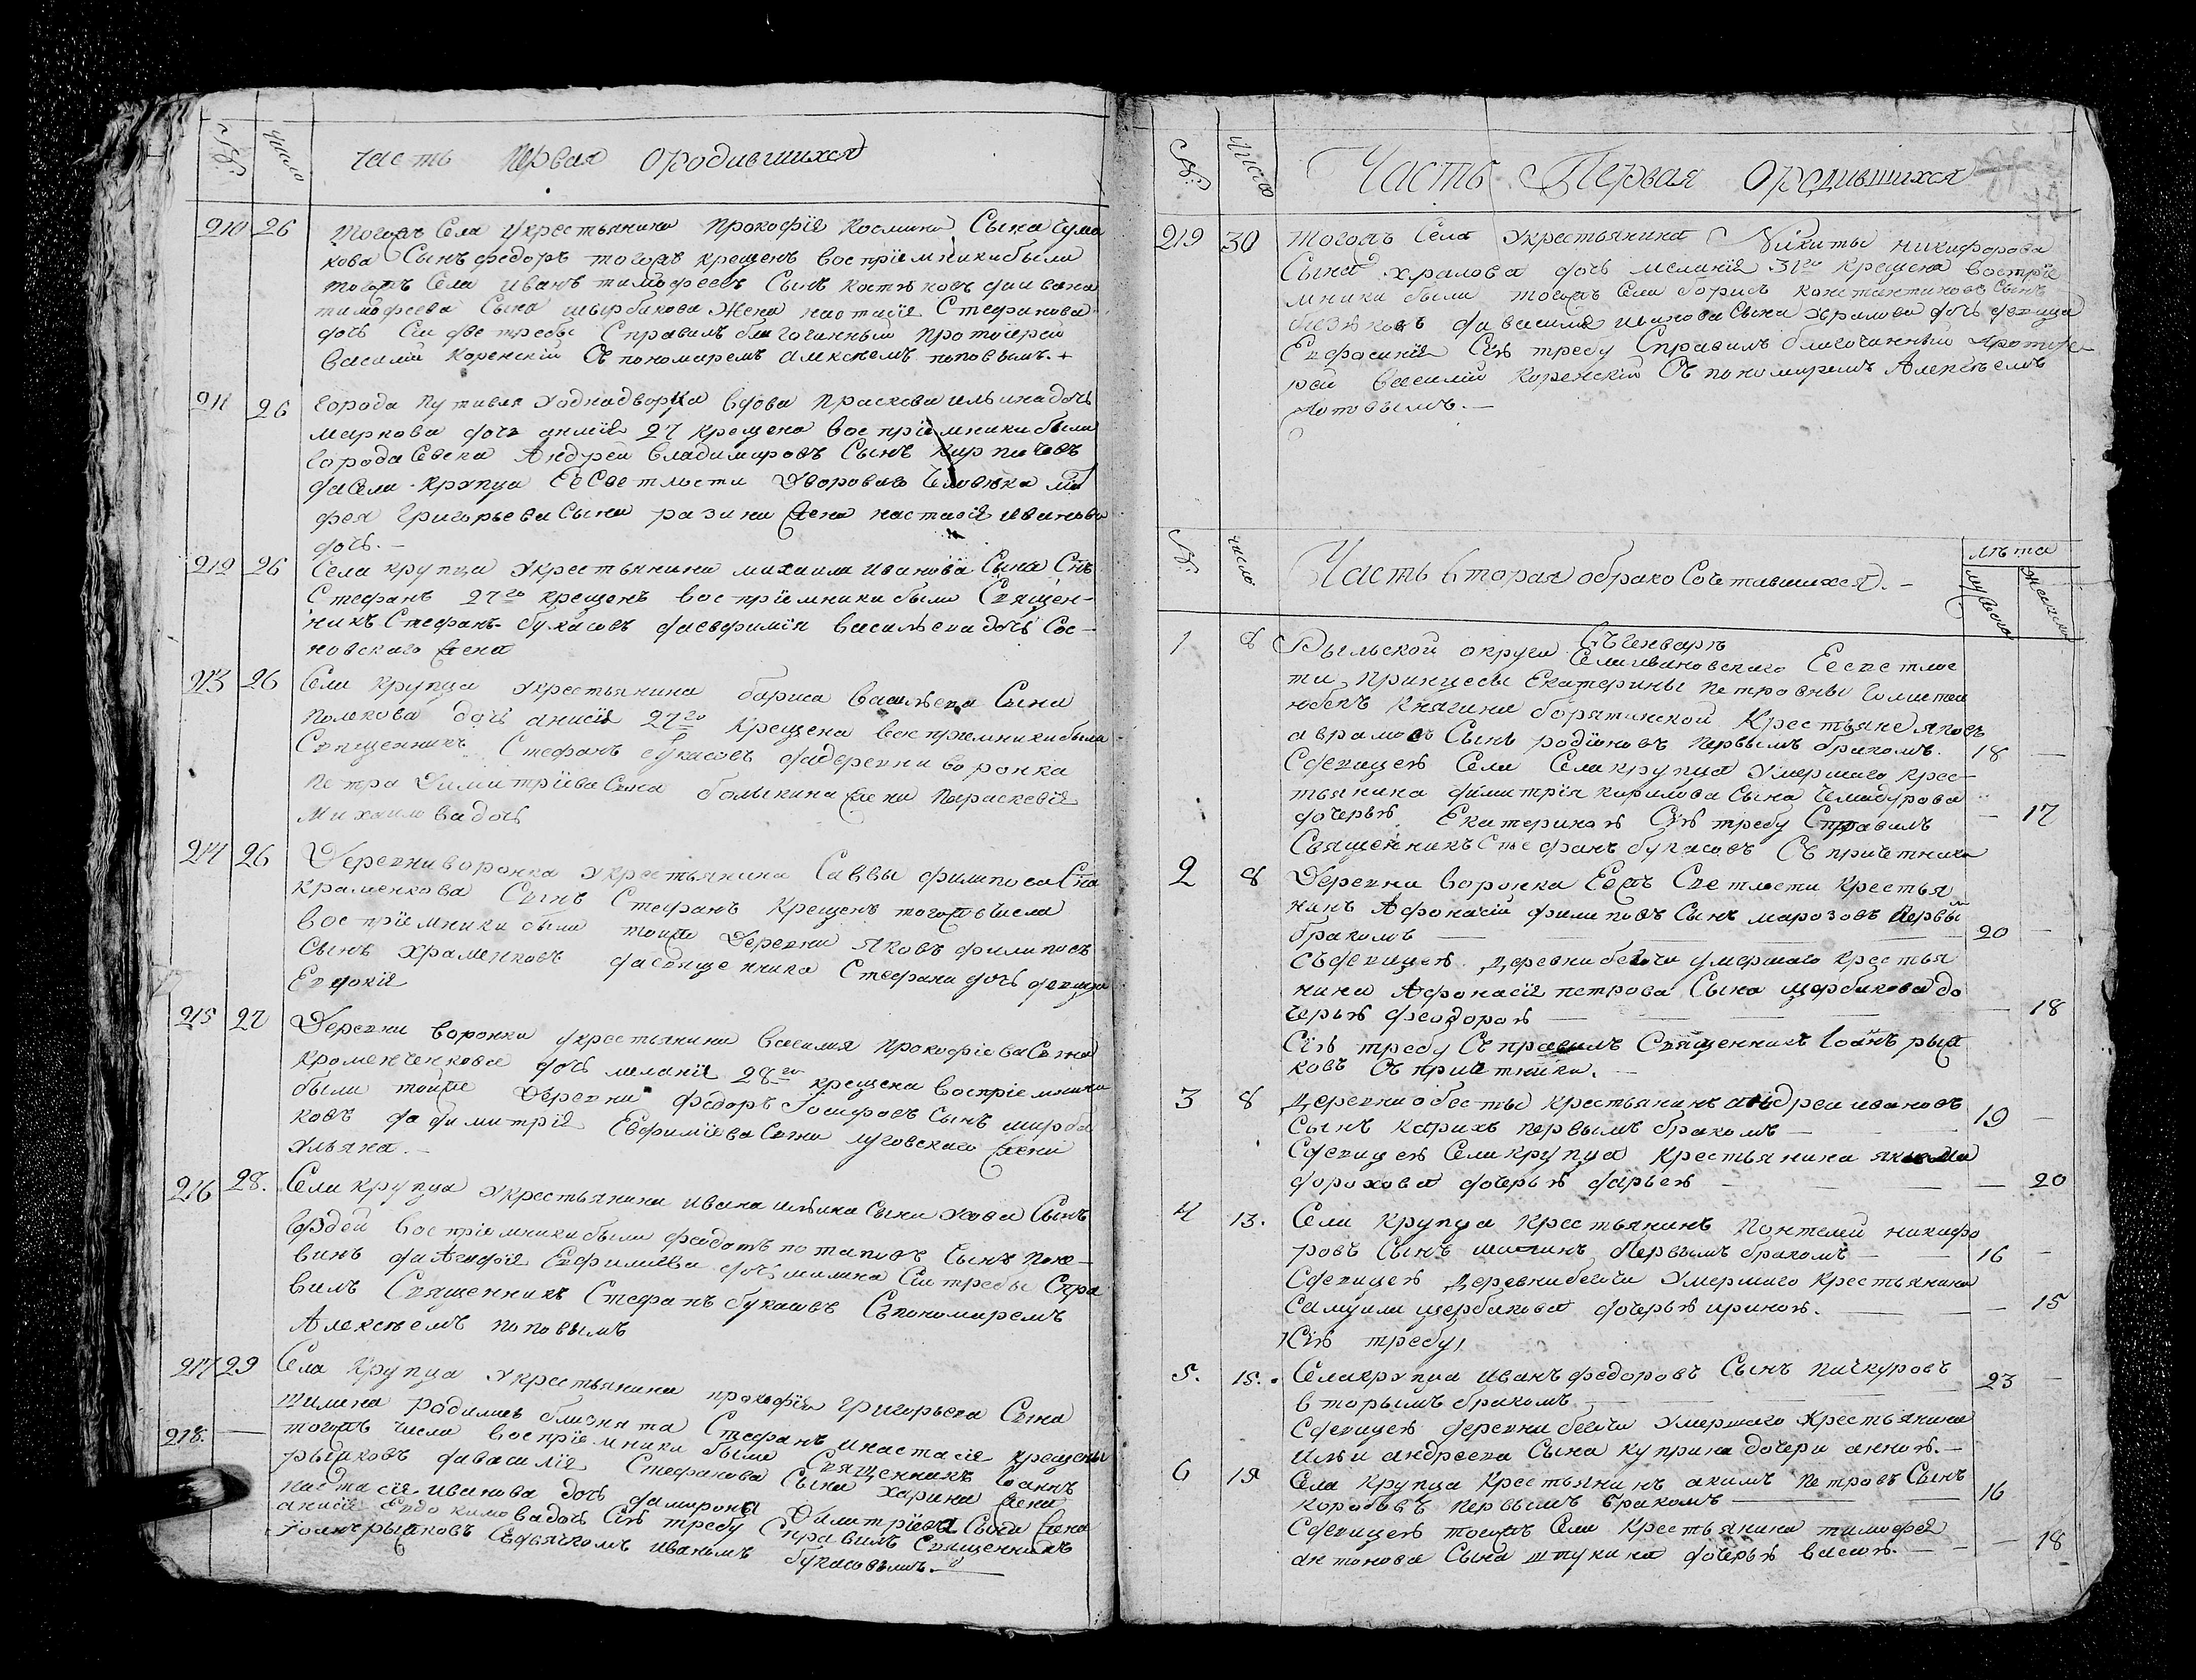 №:
число
часть первая ородившихся
210 26 тогожъ Села укрестьянина прокофiя Космина Сына Чума
кова Сынъ федоръ тогожъ крещенъ воспрiемники были
тогожъ Села иванъ тимофеевъ Сынъ костиковъ даивана
тимофеева Сына щырбакова Жена настасiя Стефанова
дочь Сiи две требы Справилъ благочинный протоиерей
василiй коренскiй Съ пономаремъ алексѣемъ поповымъ. +
211 26 города путивля Уоднадворца вдова праскева ильина дочь
маркова дочь анисiя 27 крещена воспрiемники были
города Севска Андрей владимировъ Сынъ кирпичевъ
даСела крупца ЕяСветлости Двороваго Человека
фея григорьева Сына разина Жена настасiя иванова
дочь. —
212 26 Села крупца Укрестьянина михаила иванова Сына Снъ
Стефанъ 27го крещенъ воспрiемники были Священ-
никъ Стефанъ букасовъ даевфимiя васильева дочь Сос-
новскаго жена
213 26 Села крупца укрестьянина бориса васильева Сына
полекова дочь анисiя 27го крещена воспрiемники были
Священникъ Стефанъ букасовъ дадеревни воронка
петра Димитрiева Сына болыкина жена параскевiя
михаилова дочь
214 26 Деревни воронка укрестьянина Саввы филипова Сна
храменкова Сынъ Стефанъ крещенъ тогожъ числа
воспрiемники были тойже Деревни яковъ филиповъ
Сынъ храменковъ дасвященника Стефана дочь девица
Евдокiя
215 27 Деревни воронка укрестьянина василия прокофiева Сына
кроменченкова дочь меланiя 28го крещена воспрiемники
были тойже Деревни федоръ Iосифовъ Сынъ щирба
ковъ да димитрiя Евфимiева Сына луговскаго жена
Ульяна. —
216 28. Села крупца Укрестьянина ивана ильина Сына Усова Сынъ
воспрiемники были федотъ потаповъ Сынъ поле-
винъ даАгафiя Евфимиева дочь Сiи требы Спра
вилъ Священникъ Стефанъ букасовъ Съпономаремъ
Алексѣемъ поповымъ
217 29 Села крупца Укрестьянина прокофiя григорьева Сына
родились близнята Стефанъ инастасiя крещены
218. — тогожъ числа воспрiемники были Священникъ Iоаннъ
рышковъ давасилiя Стефанова Сына харина жена
настасiя иванова дочь дамирона Димитрiева Сына жена
анисiя Евдокимова дочь Сiѣ требу Справилъ Священникъ
Iоаннъ рышковъ Съдьячкомъ иваномъ букасовымъ. —
№:
число
Часть Первая Ородившихся
219 30 тогожъ Села Укрестьянина Никиты никифорова
Сына храмова дочь меланiя 31го крещена воспрiе
мники были тогожъ Села борисъ константиновъ Сынъ
давасилия иванова Сына храмова дочь девица
Евфросинiя Сiѣ требу Справилъ благочинный протоiе-
рей василiй коренскiй Съ пономаремъ Алексѣемъ
поповымъ. —
№:
число
Часть вторая обрако Сочетавшихся. —
лѣта
мужеска
женска
Въ Генварѣ
1 8 Рыльской округи Села ивановскаго Еесветлос
ти принцесы Екатерины петровны Голштеи
нъбекъ княгини борятинской Крестьяне яковъ
аврамовъ Сынъ родiоновъ первымъ бракомъ. 18 —
Сдевицеѣ Села Села крупца Умершаго крес-
тьянина димитрiя кирилова Сына Чемадурова
дочерьѣ Екатериноѣ Сiѣ требу Справилъ — 17
Священникъ Стефанъ букасовъ Съ причетники
2 8 Деревни воронка Ееже Светлости крестья
нинъ Афонасiй филиповъ Сынъ марозовъ первы
бракомъ — 20 —
Съдевицеѣ деревни бегочи умершаго крестья
нина Афонасiя петрова Сына щербакова до
черьѣ феодороѣ — 18
Сiѣ требу Съправилъ Священникъ Iоаннъ рыш
ковъ Съ причетники. —
3 8 Деревни обесты крестьянинъ андреи ивановъ
Сынъ карихъ первымъ бракомъ — 19 —
Сдевицеѣ Села крупца крестьянина якова
дорохова дочерьѣ дарьеѣ — 20
4 13. Села крупца крестьянинъ пантелей никифо
ровъ Сынъ шатинъ первымъ бракомъ — 16 —
Сдевицеѣ деревни бегочи Умершаго Крестьянина
самуила щербакова дочерьѣ ириноѣ. — 15
Сiѣ требу
5. 15. Села крупца иванъ федоровъ Сынъ пичкуровъ 23 —
вторымъ бракомъ —
Сдевицеѣ деревни бегочи Умершаго Крестьянина
ильи андреева Сына куприна дочери анноѣ. —
6 19 Села крупца крестьянинъ акимъ петровъ Сынъ
коробовъ первымъ бракомъ — 16
Сдевицеѣ тогожъ Села крестьянина тимофея
антонова Сына дочерьѣ васоѣ. — 18